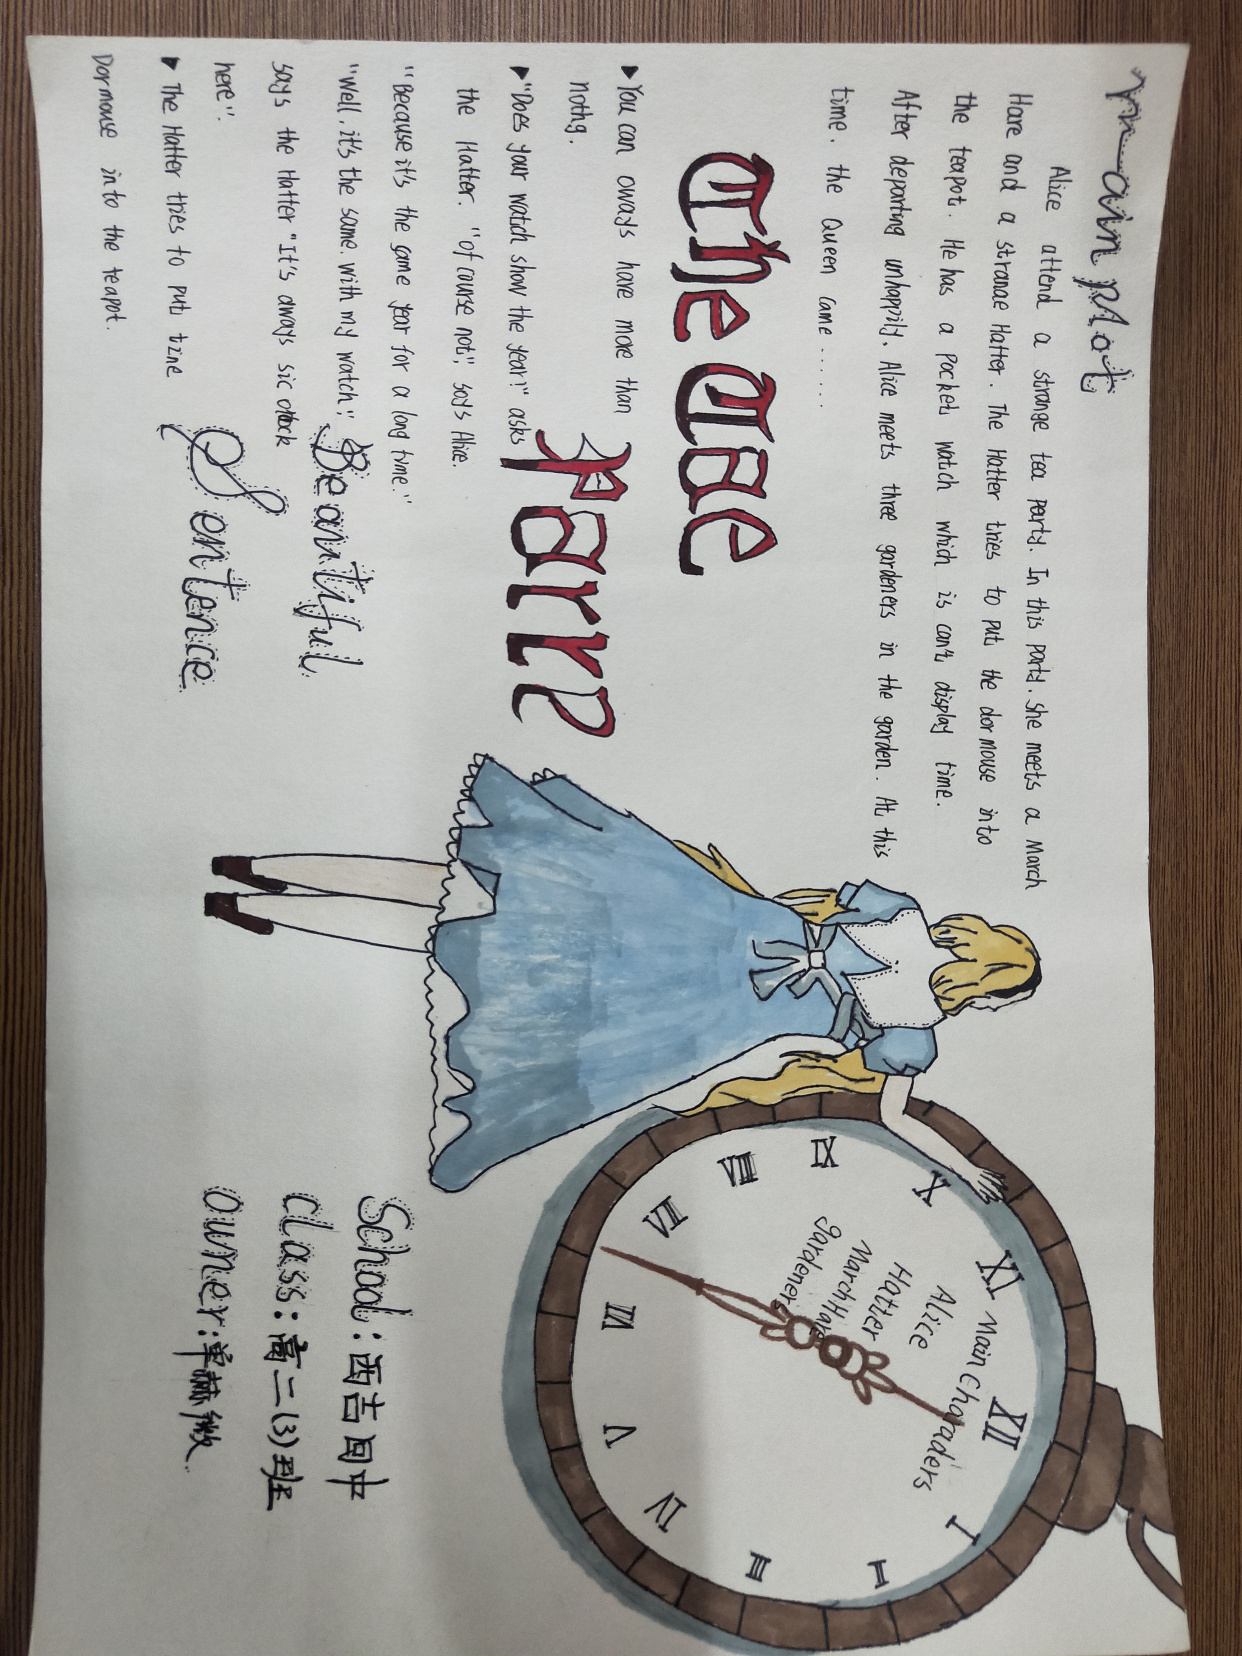 main plot
Alice attend a strange tea party. In this party. she meets a March
Hare and a stranae Hatter. The Hatter tries to put the dormouse into
the teapot. He has a pocket watch which is can't display time.
After departing unhappily. Alice meets three gardeners in the garden. At this
time. the Queen came ......
The Tae
Parry
▶ You can aways have more than
nothg.
▶ "Does your watch show the year?" asks
the Hatter. "of course not," says Alice.
"Because it's the same year for a long time."
"Well. it's the same with my watch",
says the Hatter "It's aways sic clock
here".
▶ The Hatter tries to put tzne
Dormouse into the teapot.
Beautiful
Sentence
XII
I
II
III
IV
V
VI
VII
VIII
XI
X
XI
Main Charaders
Alice
Hatter
March Hare
gardeners
School:西吉回中
class:高二(3)班
owner:单赫微